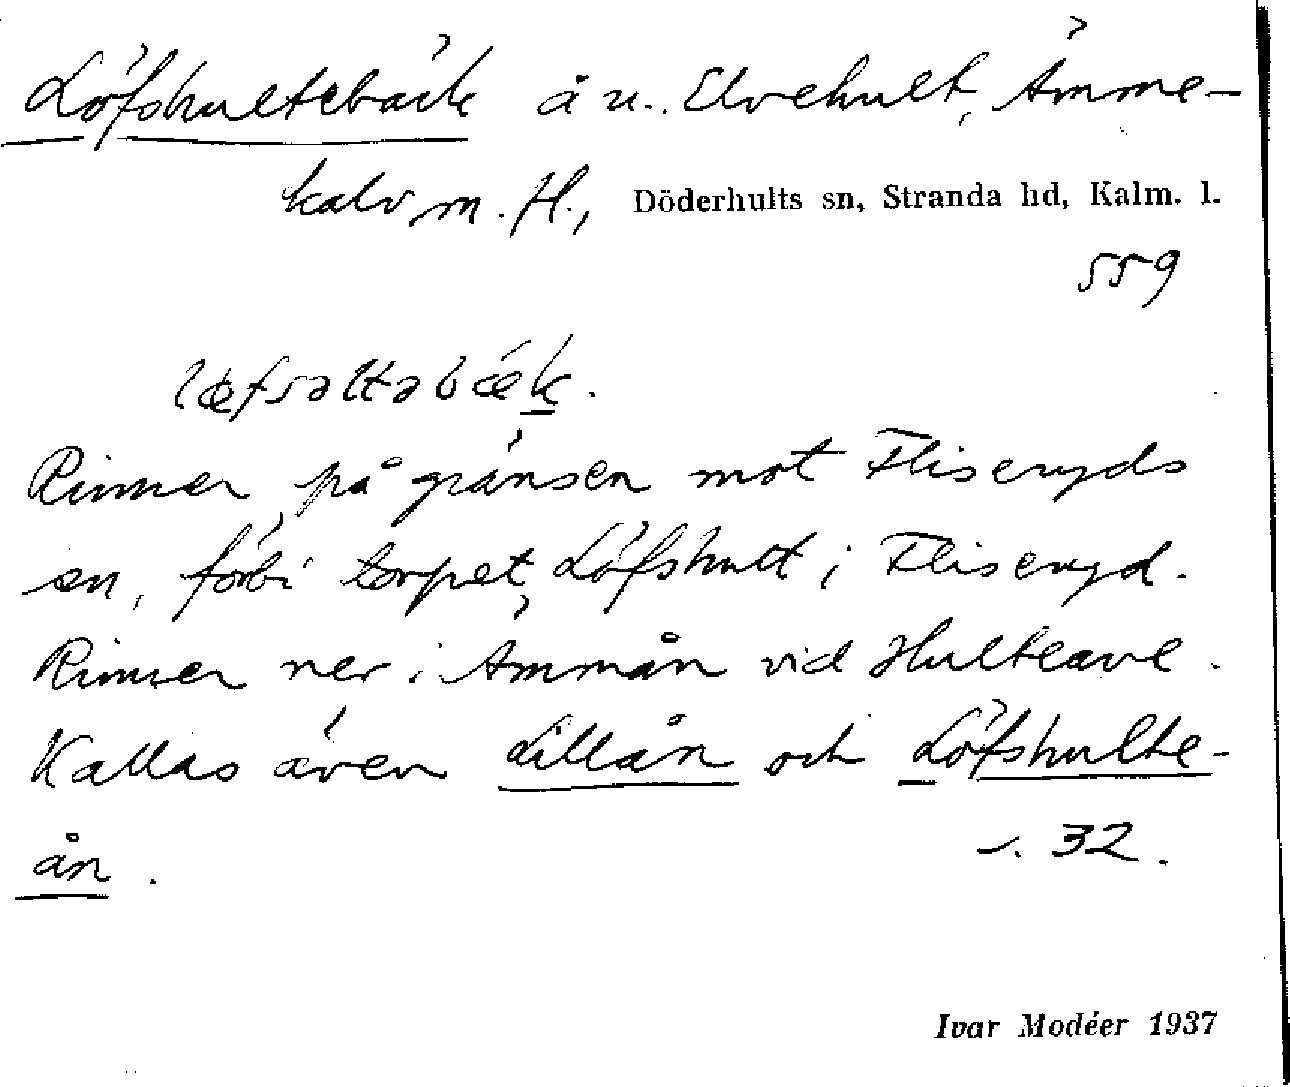 Löfshultebäck å u. Elvehult, Ämme-
kalv m. H., Döderhults sn, Stranda hd, Kalm. l.
559
læfsəltəbæk.
Rinner på gränsen mot Fliseryds
sn, förbi torpet Löfshult i Fliseryd.
Rinner ner i Ämmån vid Hulteave.
Kallas även Lillån och Löfshulte-
ån. 32.
Ivar Modéer 1937